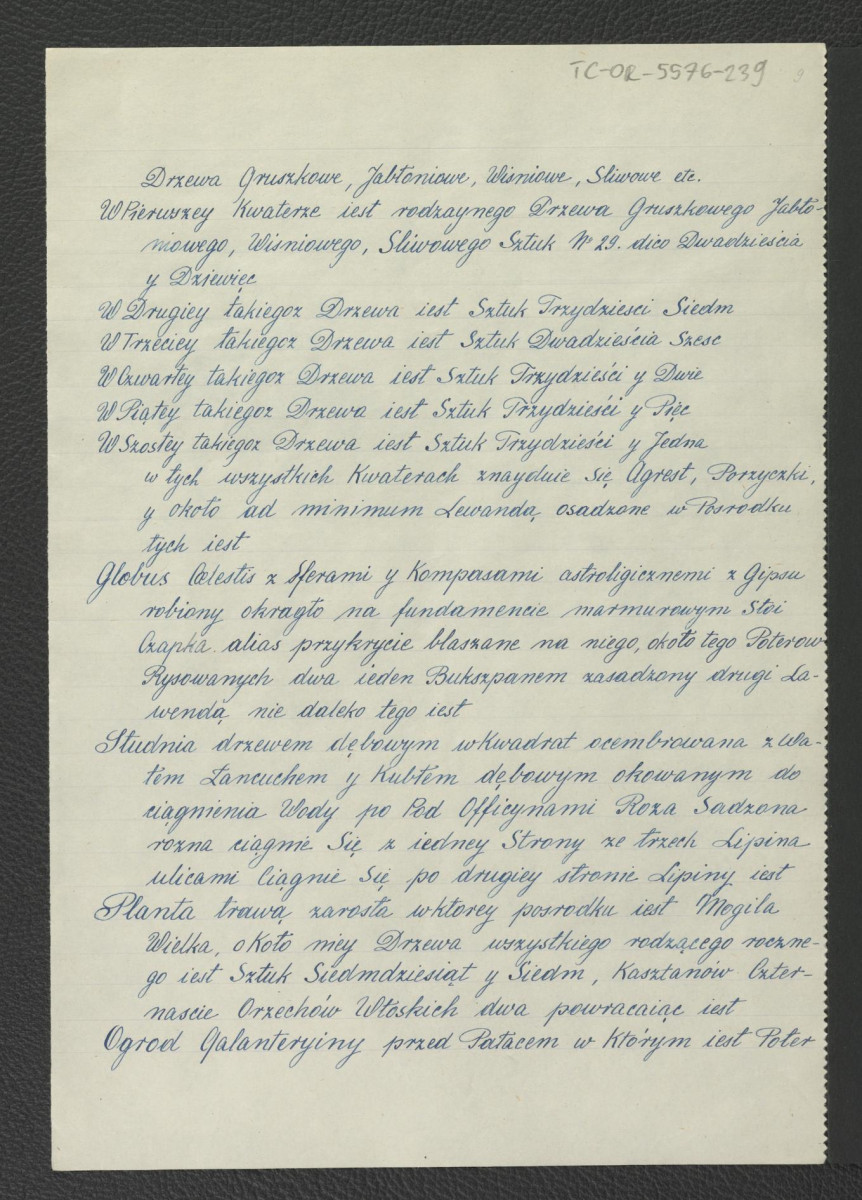 TC-OR-5576-239 9
Drzewa Gruszkowe, Jabłoniowe, Wisniowe, Sliwowe etc.
W Pierwszey Kwaterze iest rodzaynego Drzewa Gruszkowego Jabło-
niowego, Wiśniowego, Sliwowego Sztuk No 29. dico Dwadzieścia
y Dziewięc
W Drugiey takiegoz Drzewa iest Sztuk Trzydziesci Siedm
W Trzeciey takiegoz Drzewa iest Sztuk Dwadzieścia Szesc
W Czwartey takiegoz Drzewa iest Sztuk Trzydzieści y Dwie
W Piątey takiegoz Drzewa iest Sztuk Trzydzieści y Pięc
W Szostey takiegoz Drzewa iest Sztuk Trzydzieści y Jedna
w tych wszystkich Kwaterach znayduie Się Agrest, Porzyczki,
y około ad minimum Lewandą osadzone w Posrodku
tych iest
Globus Cœlestis z Sferami y Kompasami astroligicznemi z Gipsu
robiony okrągło na fundamencie marmurowym Stoi
Czapka alias przykrycie blaszane na niego, około tego Poterow
Rysowanych dwa ieden Bukszpanem zasadzony drugi La-
wendą nie daleko tego iest
Studnia drzewem dębowym w Kwadrat ocembrowana z Wa-
łem Łancuchem y Kubłem dębowym okowanym do
ciągnienia Wody po Pod Officynami Roza Sadzona
rozna ciągnie Się z iedney Strony ze trzech Lipina
ulicami Ciągnie Się po drugiey stronie Lipiny iest
Planta trawą zarosta w ktorey posrodku iest Mogila
Wielka, około niey Drzewa wszystkiego rodzącego roczne-
go iest Sztuk Siedmdziesiąt y Siedm, Kasztanów Czter-
nascie Orzechów Włoskich dwa powracaiąc iest
Ogrod Galanteryiny przed Pałacem w Którym iest Poter